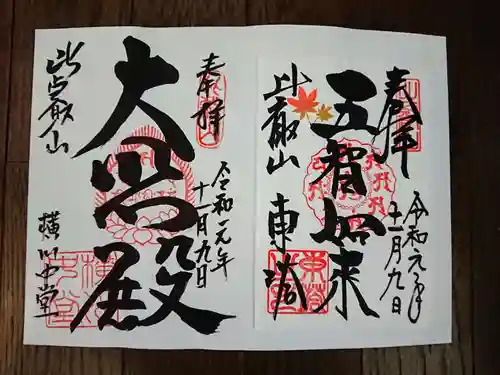 奉拝
五智如来
比叡山
東塔
令和元年
十一月九日
奉拝
大悲殿
比叡山
横川中堂
令和元年
十一月九日